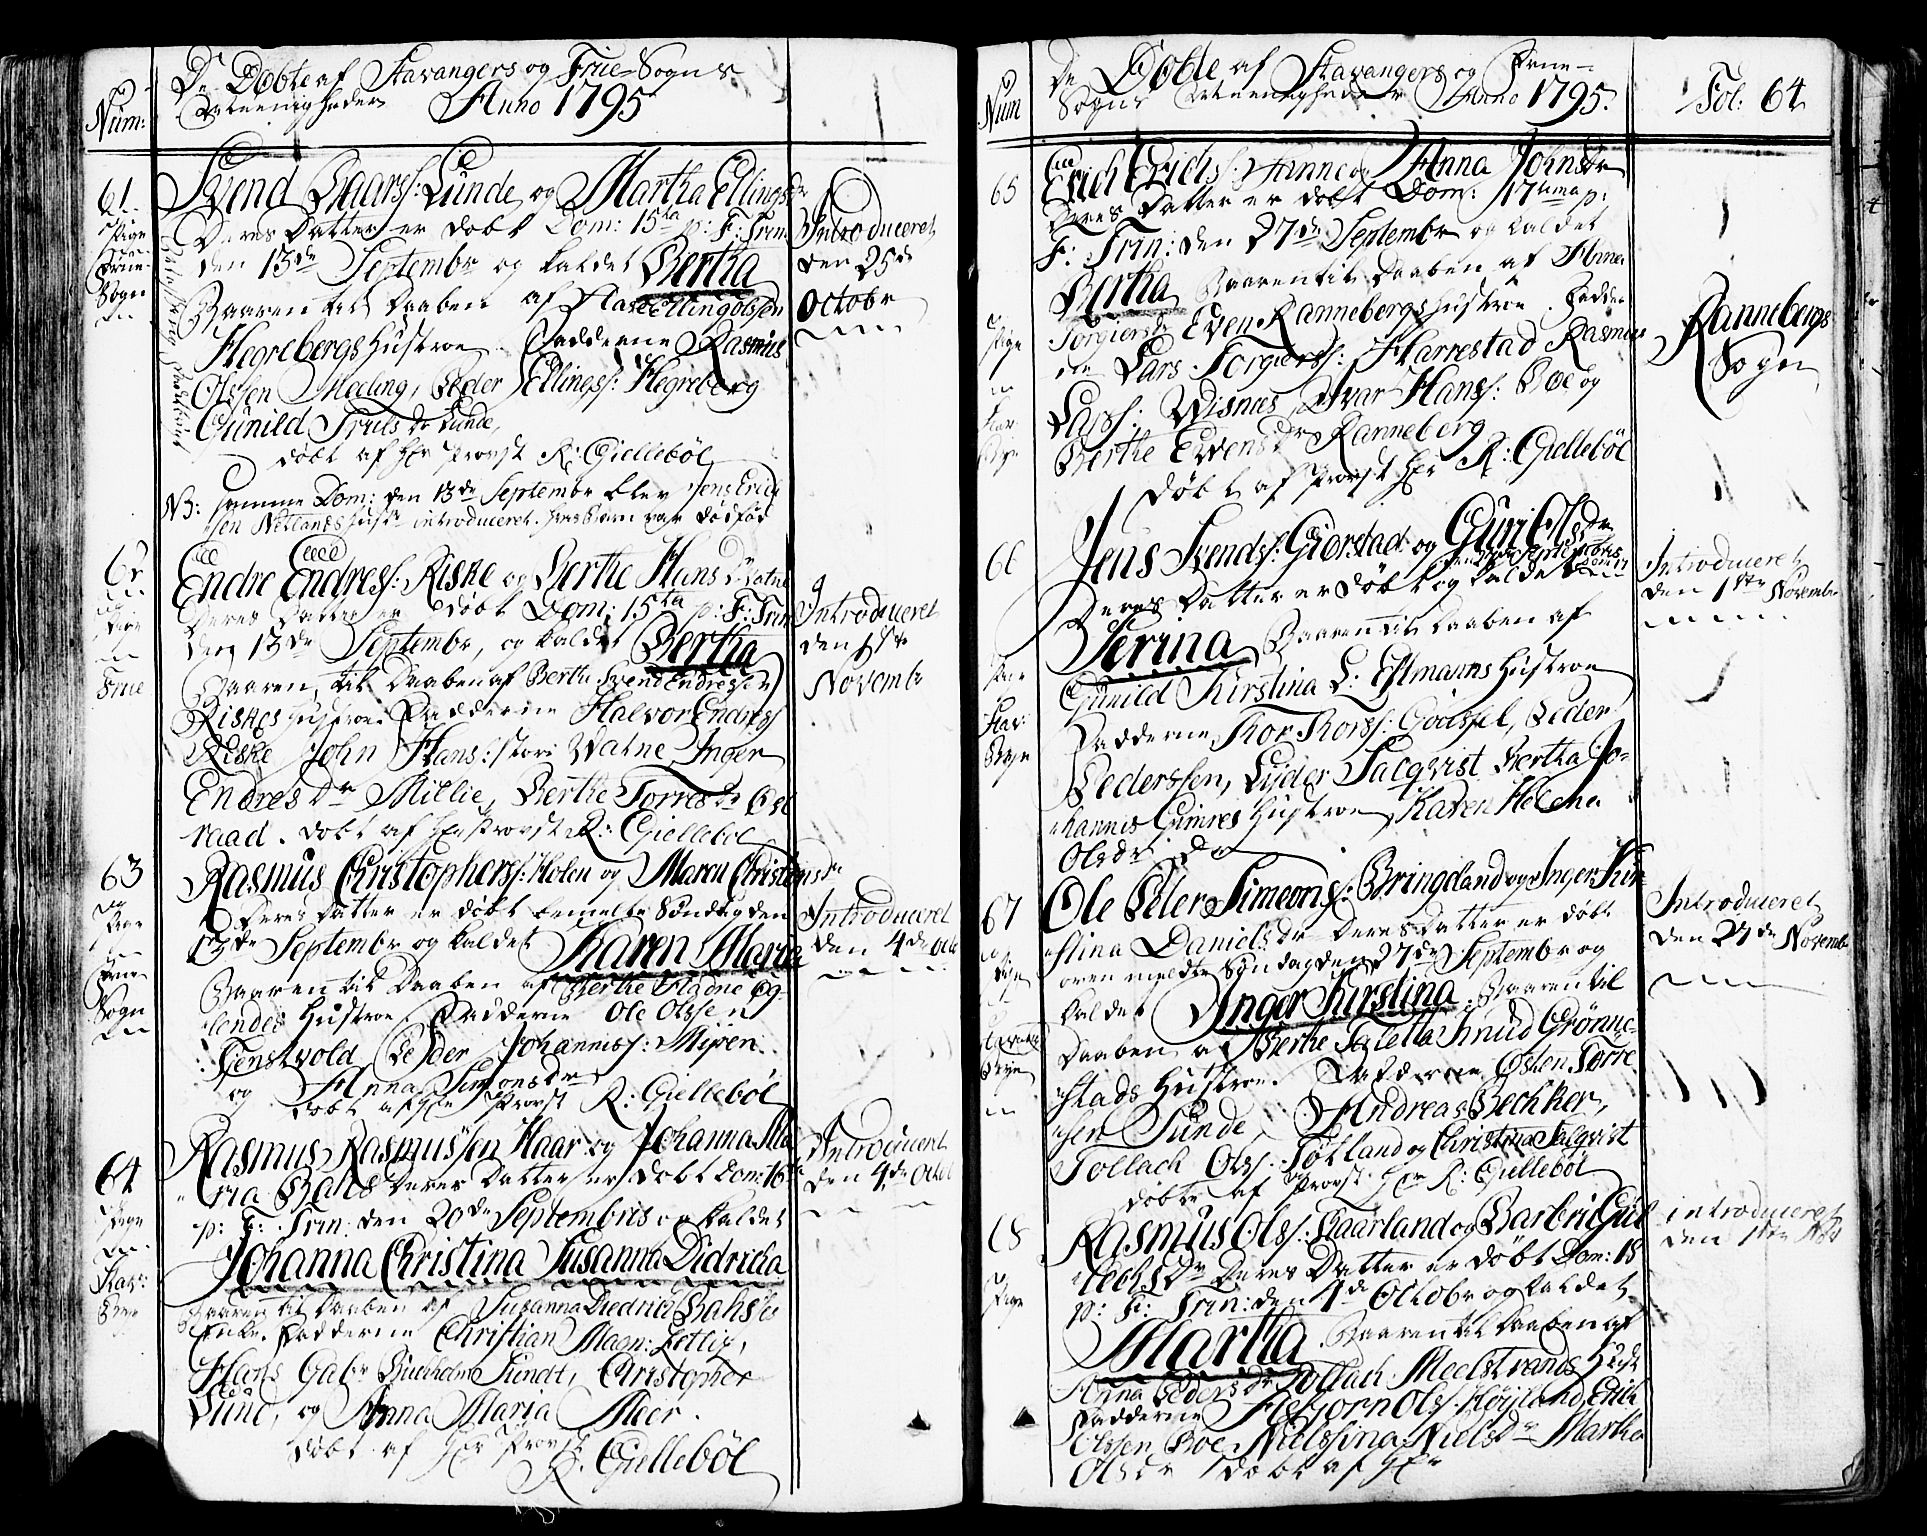 De Döbte af Stavangers og Frue-Sogns
Meenigheder Anno 1795
Num:
61
Pige
Frue-
Sogn
Svend Baarss: Lunde og Martha Ellingsdr
Deres Datter er döbt Dom: 15ta p: F: Trin:
den 13de Septembr og kaldet Bertha
Baaren til Daaben af Ellingolssen
Hegrebergs Hustroe. Fadderne Rasmus
Olssen Meeling, Peder Ellingss: Hegreberg
Gunild Truls dr Lunde,
döbt af Hr Provst R: Giellebøl
Introduceret
den 25de
Octobr
NB: samme Dom: den 13de Septembr blev Jens Erich
sen Netlands Hustr introduceret. hvis Barn var dødfød
62
Pige
Frue
Endre Endress: Riske og Berthe Hans Dr Vatne
Deres Datter er döbt Dom: 15ta p: F: Trin
den 13de Septembr, og kaldet Bertha
Baaren til Daaben af Berthe Svend Endressen
Riskes Hustroe. Fadderne Halvor Endress
Riske John Hans: store Watne Inger
Endres Dr Millie, Berthe Torres Dr
raad. döbt af Hr Provst R: Giellebøl
Introduceret
den 1ste
Novembr
63
Frue
Sogn
Rasmus Christophers: Holen og Maren Christensdr
Deres Datter er döbt bemelte Söndag den
13de Septembr og kaldet Karen Maria
Baaren til Daaben af Berthe
lendes Hustroe. Fadderne Ole Olssen
Tenstvold Peder Johanness: Miren
og Anna Simonsdr
döbt af Hr Provst R: Giellebøl
Introduceret
den 4de Octb
64
Pige
Hav:
Bye
Rasmus Rasmussen Haar og Johanna Ma
ria Bahs Deres Datter er döbt Dom: 16
p: F: Trin: den 20de Septembris og kaldet
Johanna Christina Susanna Didricha
Baaren til Daaben af Susanna Diedrich Bahs
Enke. Fadderne Christian Magn: Zettig,
Hans Gabr Buchholm Sundt, Christopher
Lund, og Anna Maria Meer.
döbt af Hr Provst
R. Giellebøl
Introduceret
den 4de Octb
De Döbte af Stavangers og Frue-
Sogns Meenigheder Anno 1795.
Num
Fol: 64
65
Pige
Hav:
Bye
Erich Erichs: Hinne og Anna Johnsdr
Deres Datter er döbt Dom: 17tima p:
F: Trin: den 27de Septembr og kaldet
Bertha Baaren til Daaben af Anna
Torgiersdr Even Rannebergs Hustroe. Fadder
ne Lars Torgierss: Harrestad Rasmus
Larss: Wisnes Ivar Hanss: Boe og
Berthe Evensdr Ranneberg
döbt af Provst Hr R: Giellebøl
Rannebergs
Sogn
66
Hav:
Bye
Jens Svends: Giorstad og Guri Olsdr
Deres Datter er döbt og kaldet
Serina Baaren til Daaben af
Gunild Kirstina L: Estmanns Hustroe
Fadderne, Thor Thorss: Goossel, Peder
Pederssen, Lyder Salqvist Bertha Jo-
hannis Gimres Hustroe, Karen Helena
Olsdr
Introduceret
den 1ste Novembr
67
Pige
Bye
Ole Peter Simeons: Bringeland og Inger Kir
stina Daniels Dr Deres Datter er döbt
oven meldte Söndag den 27de Septembr og
kaldet Inger Kirstina. Baaren til
Daaben af Berthe Taletta Knud Grönne-
stads Hustroe. Fadderne Osten Torre
sen Sunde, Andreas Bechker,
Tollach Olss. Tötland og Christina Salqvist
döbt af Provst Hr R: Giellebøl
Introduceret
den 27de Novembr
68
Pige
Rasmus Olss: Haarland og Barbri Gul
lechs Dr Deres Datter er döbt Dom: 18
p: F: Trin: den 4de Octobr og kaldet
Martha. Baaren til Daaben af
Anna Pedersdr Tollach Meelstrands Hust
Fadderne Asbiorn Olss. Höiland, Erich
Olssen Boe Nielssina Niels Dr Martha
Olsdr döbt af Hr
introduceret
den 1ste Nov